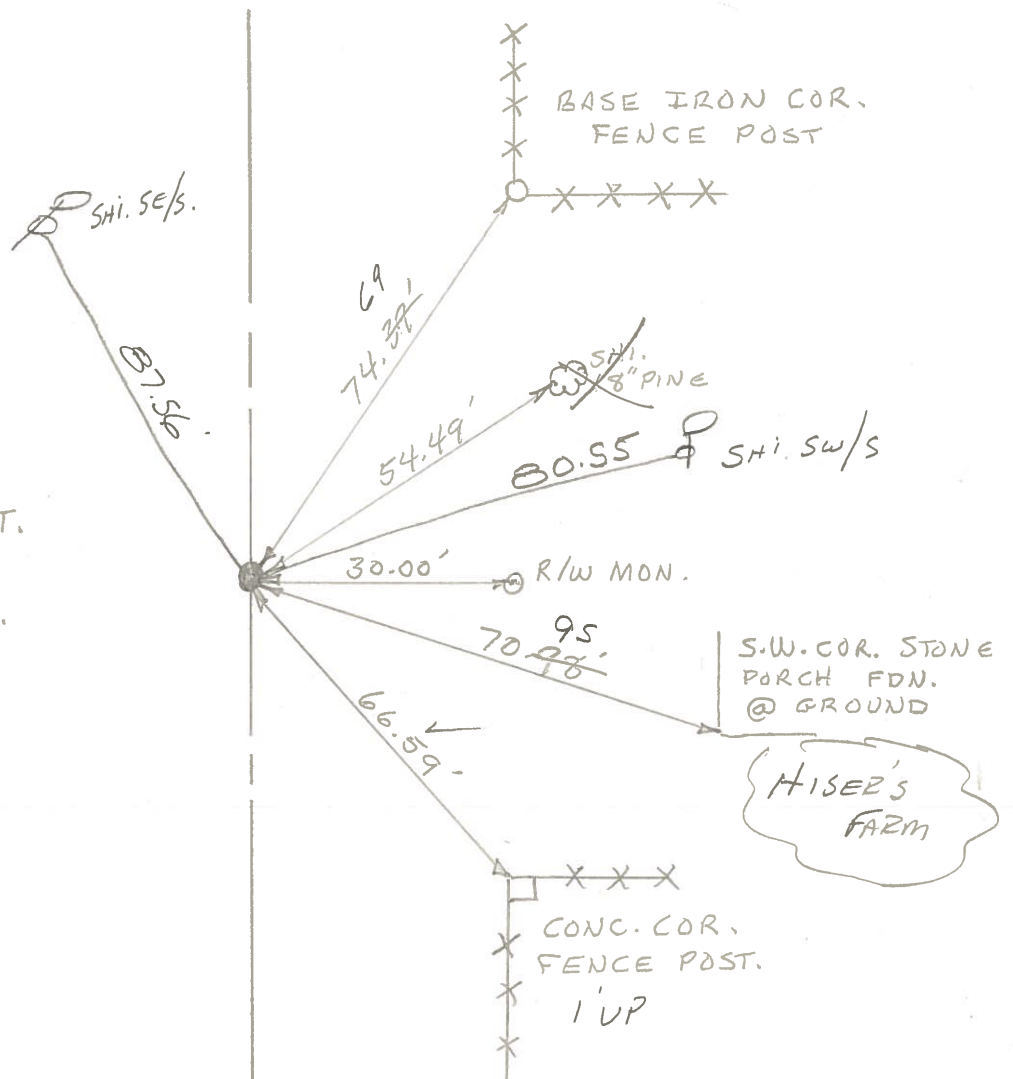 BASE IRON COR.
FENCE POST
SHI. SE/S.
69
74.37'
87.56
SHI.
18" PINE
54.49'
80.55
SHI. SW/S
T.
30.00'
R/W MON.
.
95
70.98'
S.W. COR. STONE
PORCH FDN.
@ GROUND
66.59'
HISER'S
FARM
CONC. COR.
FENCE POST.
1' UP